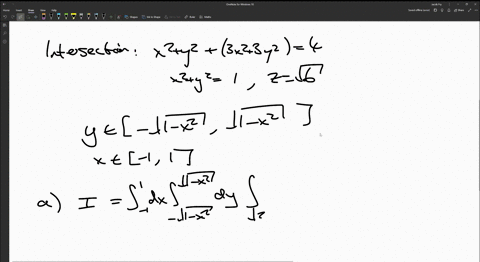 Intersection: x²+y²+(3x²+3y²)=4
x²+y²=1, z=√6
y∈[-√1-x², √1-x²]
x∈[-1, 1]
a) I = ∫₋₁¹dx∫_{-√1-x²}^{√1-x²} dy ∫_{√2}